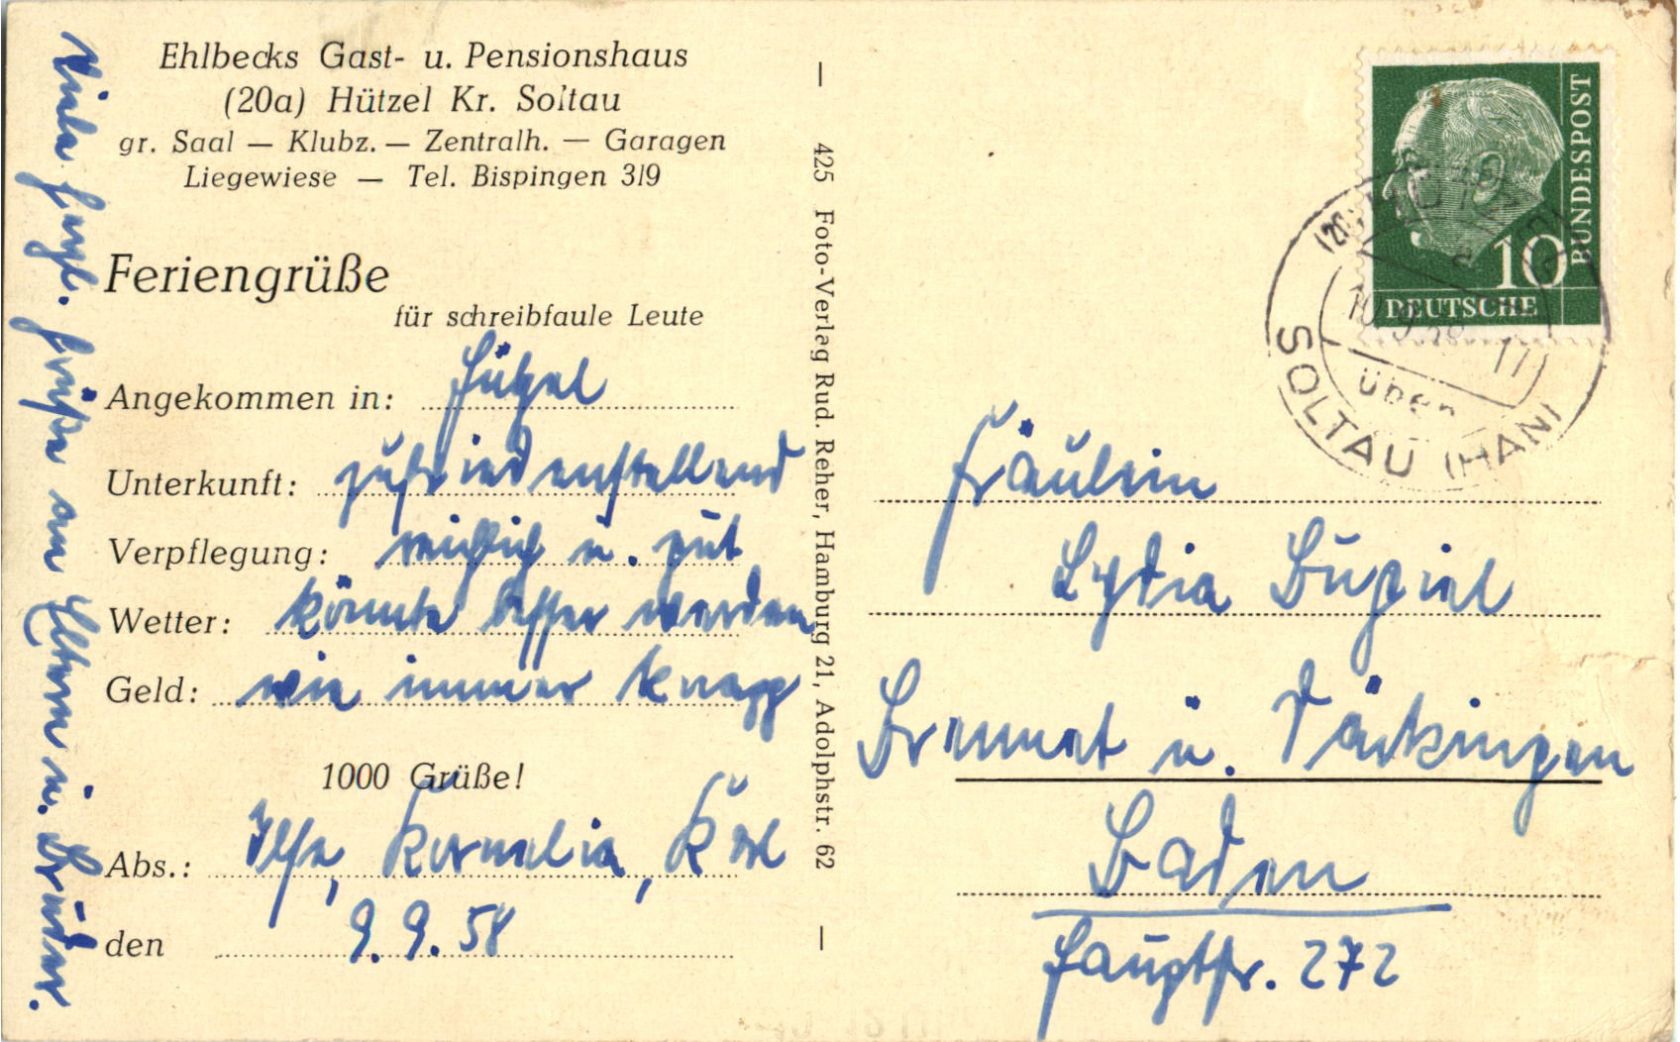 Ehlbecks Gast- u. Pensionshaus
(20a) Hützel Kr. Soltau
gr. Saal — Klubz. — Zentralh. — Garagen
Liegewiese — Tel. Bispingen 3/9
Feriengrüße
für schreibfaule Leute
Angekommen in: Hützel
Unterkunft: zufriedenstellend
Verpflegung: reichlich u. gut
Wetter: könnte besser werden
Geld: wie immer knapp
1000 Grüße!
Abs.: Ilse, Kornelia, Karl
den 9.9.58
Viele herzl. Grüße an Eltern u. Brüder.
— 425 Foto-Verlag Rud. Reher, Hamburg 21, Adolphstr. 62 —
BUNDESPOST
10
DEUTSCHE
10.9.58 17
über
SOLTAU (HAN)
Fräulein
Lydia
Brennet ü. Säckingen
Baden
Hauptstr. 272